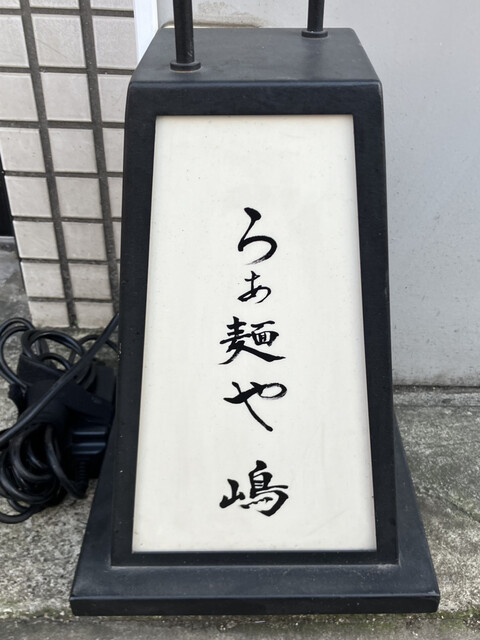 らぁ麺や 嶋